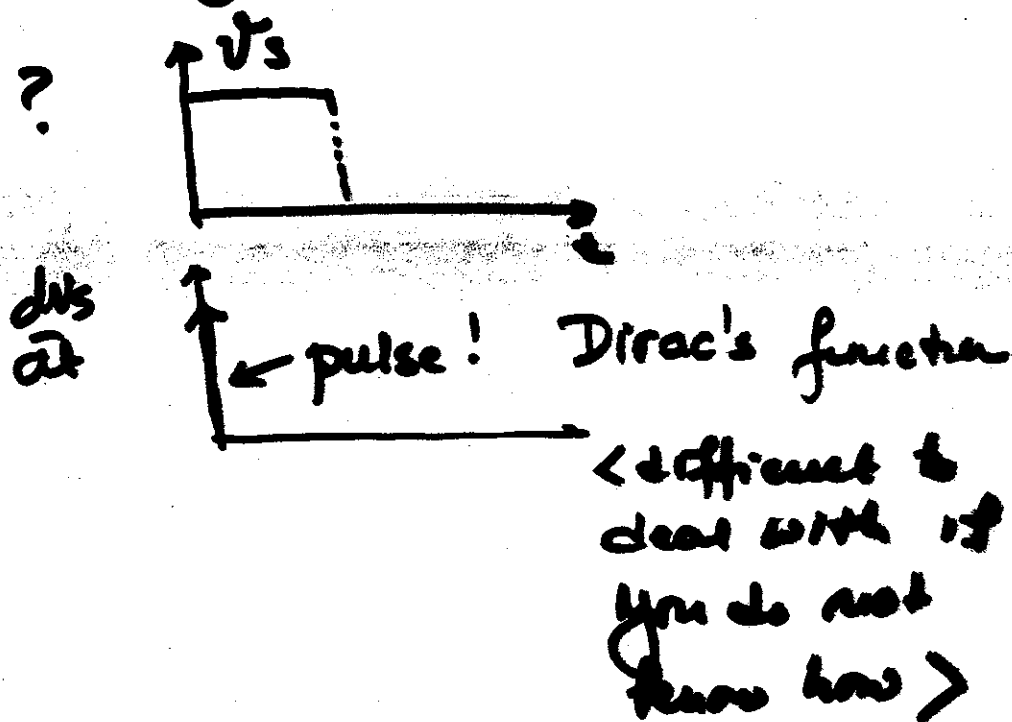 ?
vs
t
dvs
dt
← pulse! Dirac's function
<difficult to
deal with if
you do not
know how>